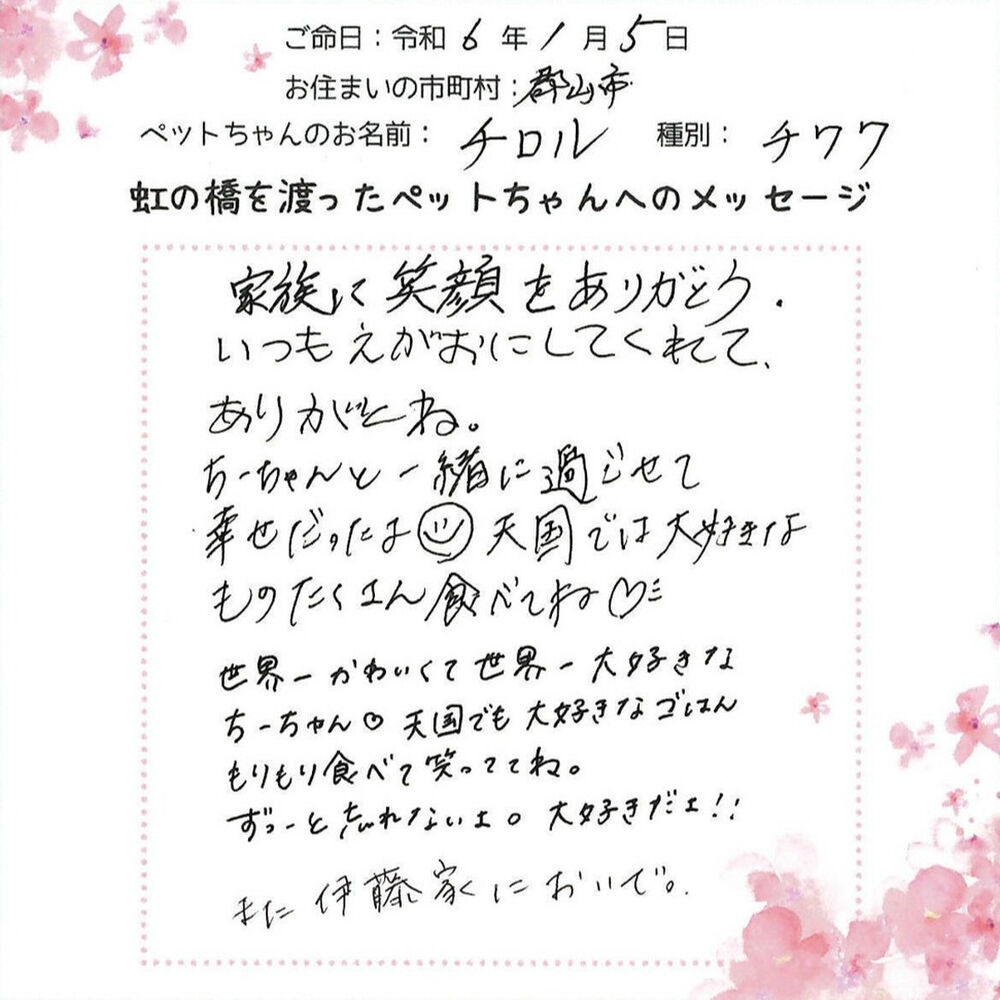 ご命日：令和 6 年 1 月 5 日
お住まいの市町村：郡山市
ペットちゃんのお名前： チロル 種別： チワワ
虹の橋を渡ったペットちゃんへのメッセージ
家族に笑顔をありがとう.
いつもえがおにしてくれて、
ありがとね。
ちーちゃんと一緒に過ごせて
幸せだったよ 天国では大好きな
ものたくさん食べてね♡
世界一かわいくて世界一大好きな
ちーちゃん♡ 天国でも大好きなごはん
もりもり食べて笑っててね。
ずっーと忘れないよ。大好きだよ!!
また伊藤家においで。